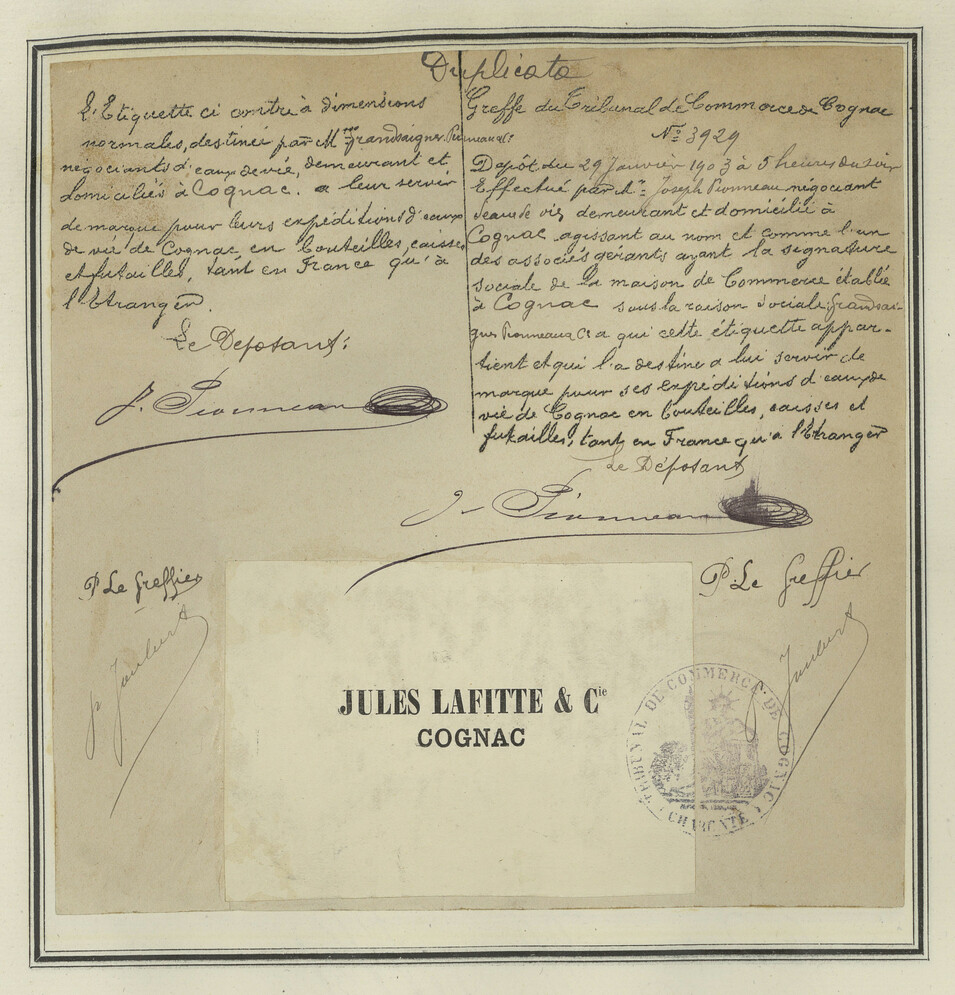 Duplicata
L'Etiquette ci contre à dimensions
normales, destinée par M.rs Grandsaigne, Pionneau & Cie
négociants d'eaux de vie, demeurant et
domiciliés à Cognac. a leur servir
de marque pour leurs expéditions d'eaux
de vie de Cognac, en bouteilles, caisses
et futailles, tant en France qu'à
l'Etranger.
Le Déposant:
J. Pionneau
Greffe du Tribunal de Commerce de Cognac
No 3929
Dépôt du 29 Janvier 1903 à 5 heures du soir
Effectué par Mr Joseph Pionneau négociant
d'eaux de vie, demeurant et domicilié à
Cognac agissant au nom et comme l'un
des associés gérants ayant la signature
sociale de la maison de Commerce établie
à Cognac sous la raison sociale: Grandsai-
gne Pionneau & Cie a qui cette étiquette appar-
tient et qui l'a destine a lui servir de
marque pour ses expéditions d'eaux de
vie de Cognac en bouteilles, caisses et
futailles, tant en France qu'à l'Etranger
Le Déposant
J. Pionneau
P Le Greffier
Joubert
P. Le Greffier
Joubert
JULES LAFITTE & Cie
COGNAC
TRIBUNAL DE COMMERCE DE COGNAC
CHARENTE